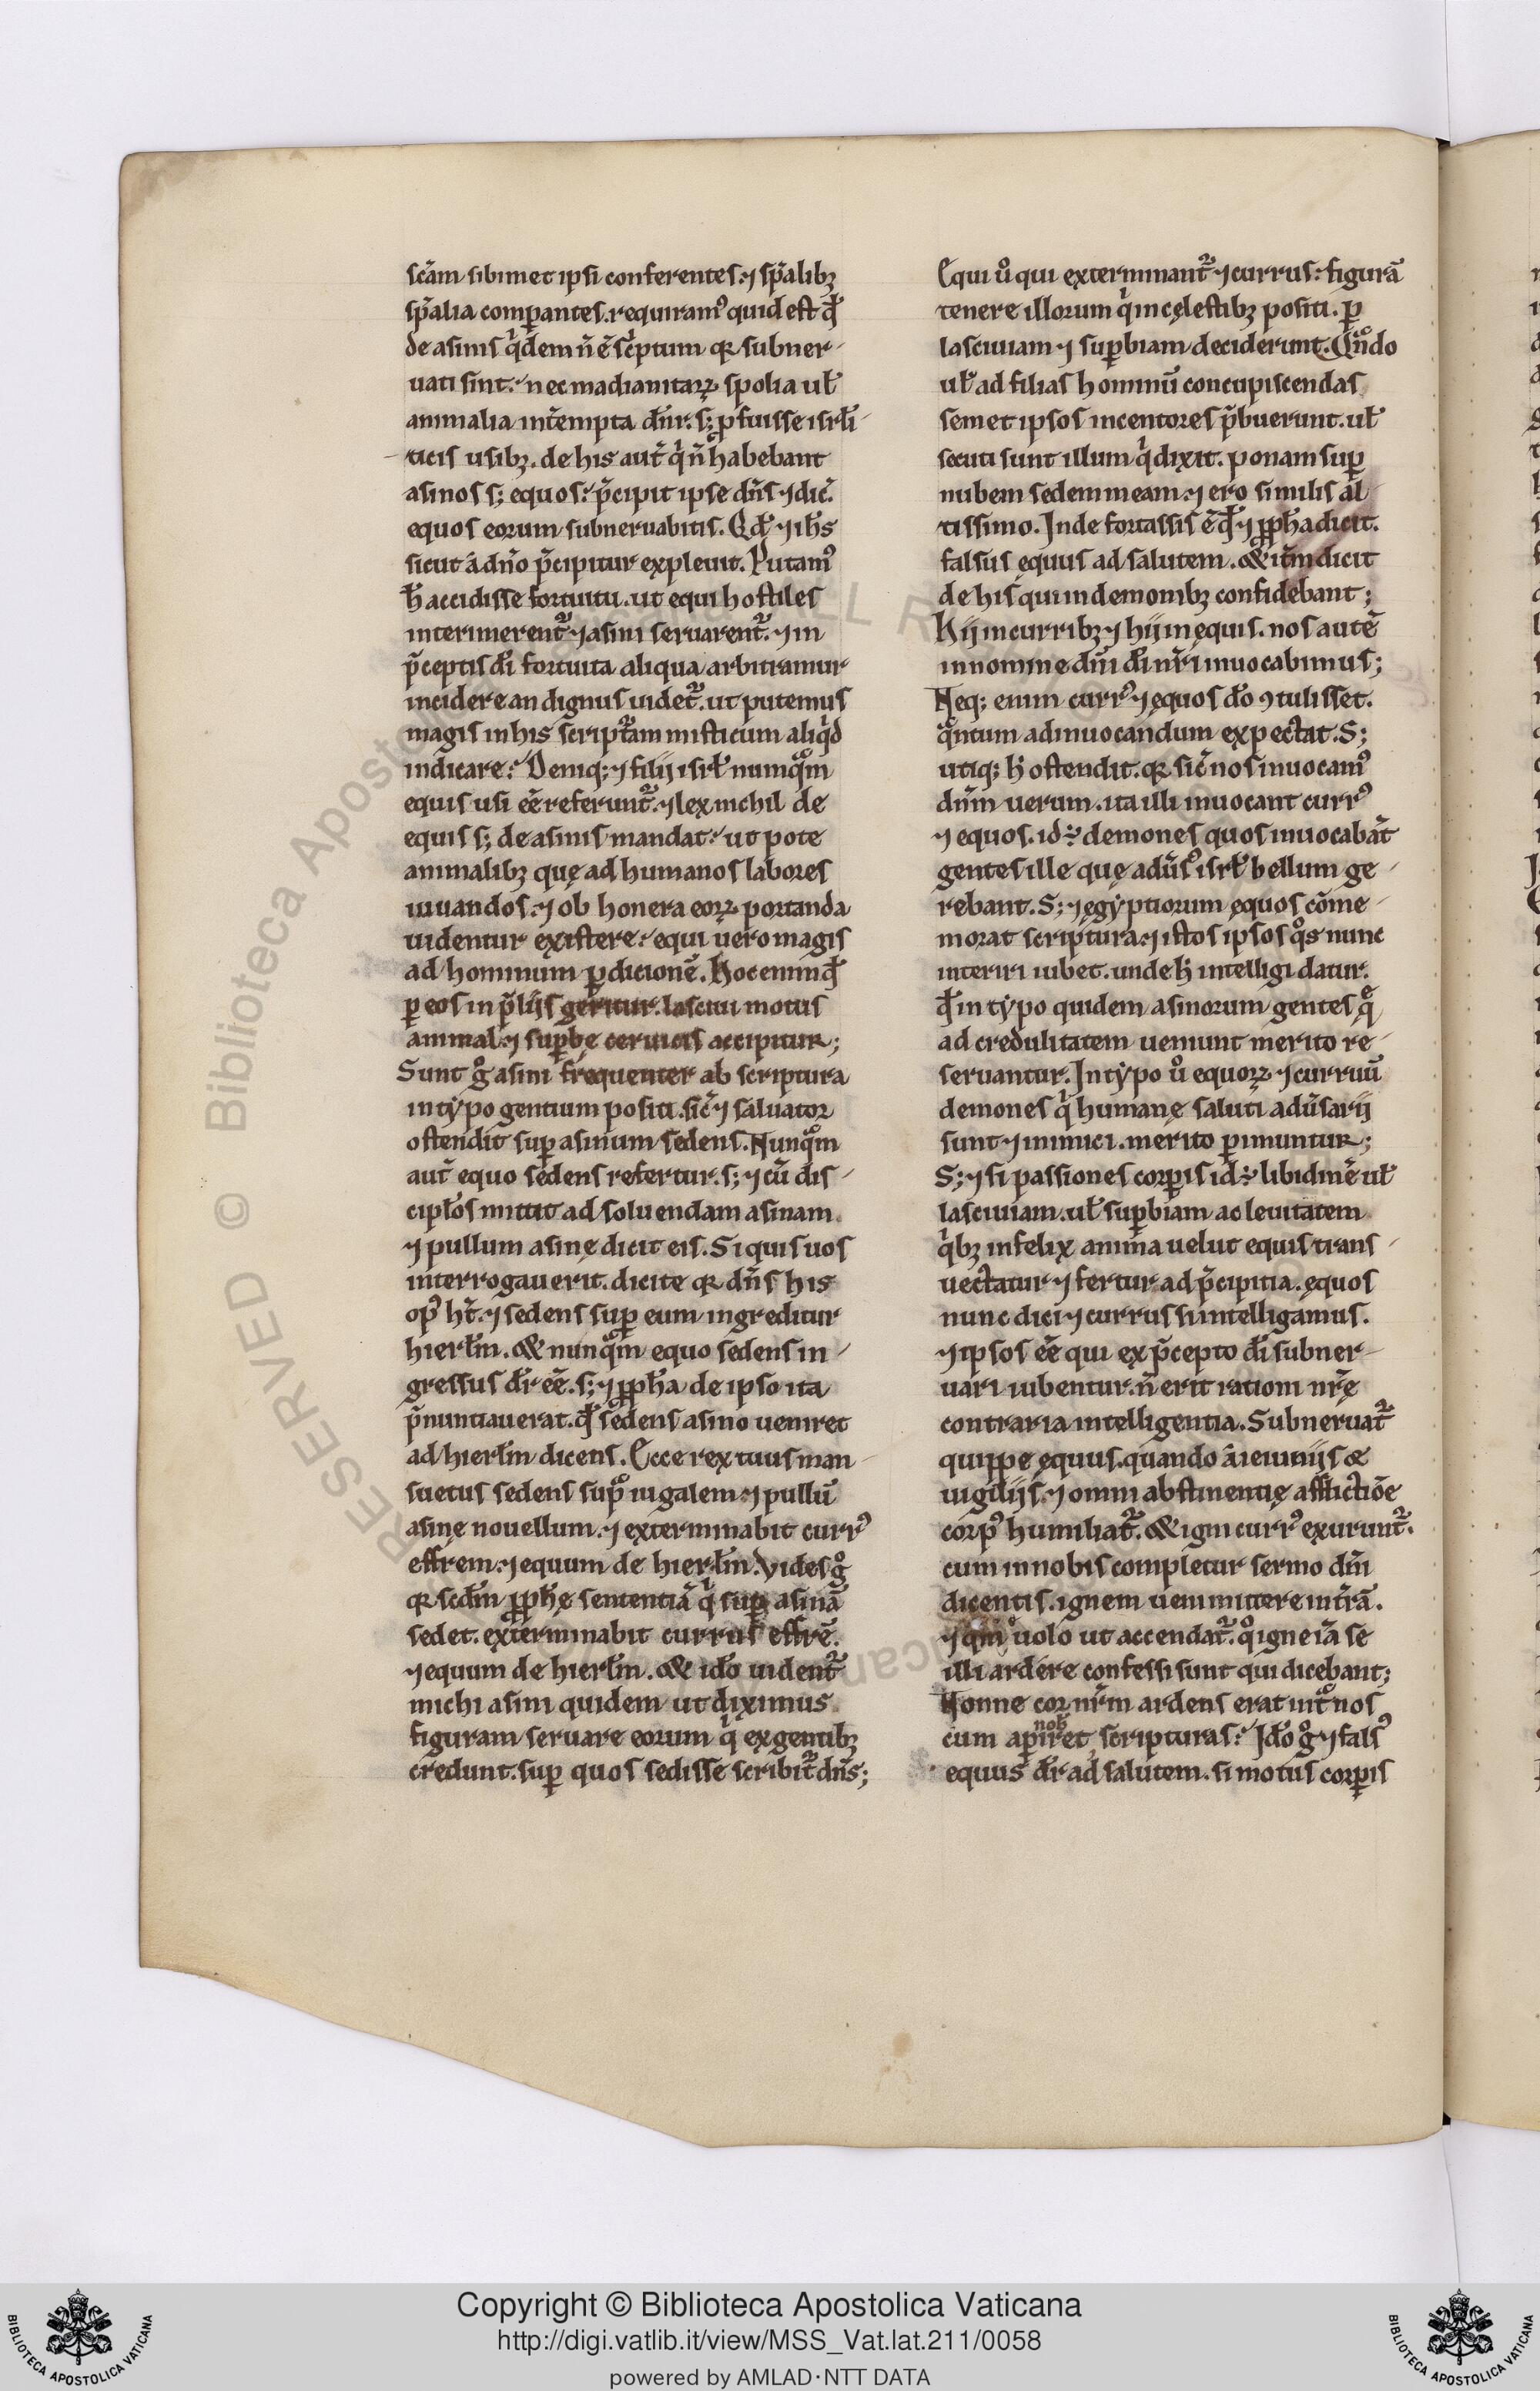 sc̄am sibimet ipsi conferentes. ⁊ sp̄alibꝫ
sp̄alia comꝑantes. requiramꝰ quid est qd̓
de asinis qͥdem n̄ ē scͥptum qꝛ subner-
uati sint. nec madianitaꝝ spolia ul̓
animalia int̄empta dn̄r. sꝫ ꝓfuisse isrl̓i-
ticis usibꝫ. de his aut̄ qͥ n̄ habebant
asinos sꝫ equos. p̄cipit ipse dn̄s ⁊ dic̄.
equos eorum subneruabitis. Qd̓ ⁊ ih̄s
sicut a dn̄o p̄cipitur expleuit. Putamꝰ
h̓ accidisse fortuitu. ut equi hostiles
interimerent᷑ ⁊ asini seruarent᷑. ⁊ in
p̄ceptis di̓ fortuita aliqua arbitramur
incidere an dignus uidet᷑. ut putemus
magis in his script᷑am misticum aliqͥd
indicare. Deniqꝫ ⁊ filij isrl̓ numqͣm
equis usi eē referunt᷑. ⁊ lex nichil de
equis sꝫ de asinis mandat. ut pote
animalibꝫ quę ad humanos labores
iuuandos. ⁊ ob honera eoꝝ portanda
uidentur existere. equi uero magis
ad hominum ꝑdicionē. Hoc enim qd̓
ꝑ eos in p̄lijs geritur. lasciui motus
animal ⁊ suꝑbę ceruicis accipitur;
Sunt gͦ asini frequenter ab scriptura
in tẏpo gentium positi. sic̄ ⁊ saluator
ostendit suꝑ asinum sedens. Nunqͣm
aut̄ equo sedens refertur. sꝫ ⁊ cū dis-
cipl̓os mittit ad soluendam asinam
⁊ pullum asinę dicit eis. Si quis uos
interrogauerit. dicite qꝛ dn̄s his
opꝰ ht̄. ⁊ sedens suꝑ eum ingreditur
hierl̓m. & nunqͣm equo sedens in-
gressus dr̄ eē. sꝫ ⁊ ꝓph̓a de ipso ita
p̄nuntiauerat. qd̓ sedens asino ueniret
ad hierl̓m dicens. Ecce rex tuus man-
suetus sedens supͣ iugalem ⁊ pullū
asinę nouellum. ⁊ exterminabit currꝰ
effrem. ⁊ equum de hierl̓m. Vides gͦ
qꝛ scd̓m ꝓph̓ę sententiā qͥ suꝑ asinā
sedet. exterminabit currus effrē.
⁊ equum de hierl̓m. & ido̓ uident᷑
michi asini quidem ut diximus
figuram seruare eorum qͥ ex gentibꝫ
credunt. suꝑ quos sedisse scribit᷑ dn̄s;
Equi uͦ qui exterminant᷑ ⁊ currus. figurā
tenere illorum qͥ in cęlestibꝫ positi. ꝑ
lasciuiam ⁊ suꝑbiam deciderunt. Qn̄do
ul̓ ad filias hominū concupiscendas
semet ipsos incentores p̄buerunt. ul̓
secuti sunt illum qͥ dixit. ponam suꝑ
nubem sedem meam. ⁊ ero similis al-
tissimo. Inde fortassis ē qd̓ ⁊ ꝓph̓a dicit.
falsus equus ad salutem. & itm̄ dicit
de his qui in demonibꝫ confidebant;
Hij in curribꝫ ⁊ hij in equis. nos autē
in nomine dn̄i di̓ nr̄i inuocabimus;
Neqꝫ enim currꝰ ⁊ equos do̓ ꝯtulisset.
qͣntum ad inuocandum expectat. Sꝫ
utiqꝫ h̓ ostendit. qꝛ sic̄ nos inuocamꝰ
dn̄m uerum. ita illi inuocant currꝰ
⁊ equos. id ÷ demones quos inuocabāt
gentes ille quę adūsꝰ isrl̓ bellum ge-
rebant. Sꝫ ⁊ egẏptiorum equos cōme-
morat scriptura. ⁊ istos ipsos qͦs nunc
interiri iubet. unde h̓ intelligi datur.
qd̓ in tẏpo quidem asinorum gentes qͤ
ad credulitatem ueniunt merito re-
seruantur. In tẏpo uͦ equoꝝ ⁊ curruū
demones qͥ humanę saluti adūsarij
sunt ⁊ inimici. merito ꝑimuntur;
Sꝫ ⁊ si passiones corꝑis id ÷ libidinē ul̓
lasciuiam. ul̓ suꝑbiam ac leuitatem
qͥbꝫ infelix anima uelut equis trans-
uectatur ⁊ fertur ad p̄cipitia. equos
nunc dici ⁊ currus si intelligamus.
⁊ ipsos eē qui ex p̄cepto di̓ subner-
uari iubentur. n̄ erit rationi nr̄ę
contraria intelligentia. Subneruat᷑
quippe equus. quando a ieiunijs &
uigilijs. ⁊ omni abstinentię afflictiōe
corpꝰ humiliat᷑. & igni currꝰ exurunt᷑.
cum in nobis completur sermo dn̄i
dicentis. ignem ueni mittere in t̄rā.
⁊ qm̄ uolo ut accendat᷑. qͦ igne iā se
illi ardere confessi sunt qui dicebant;
Nonne cor nr̄m ardens erat intͣ nos
cum aꝑiret nob̓ scripturas. Ido̓ gͦ ⁊ falsꝰ
equus dr̄ ad salutem. si motus corꝑis
Copyright © Biblioteca Apostolica Vaticana
http://digi.vatlib.it/view/MSS_Vat.lat.211/0058
powered by AMLAD·NTT DATA
BIBLIOTECA APOSTOLICA VATICANA
BIBLIOTECA APOSTOLICA VATICANA